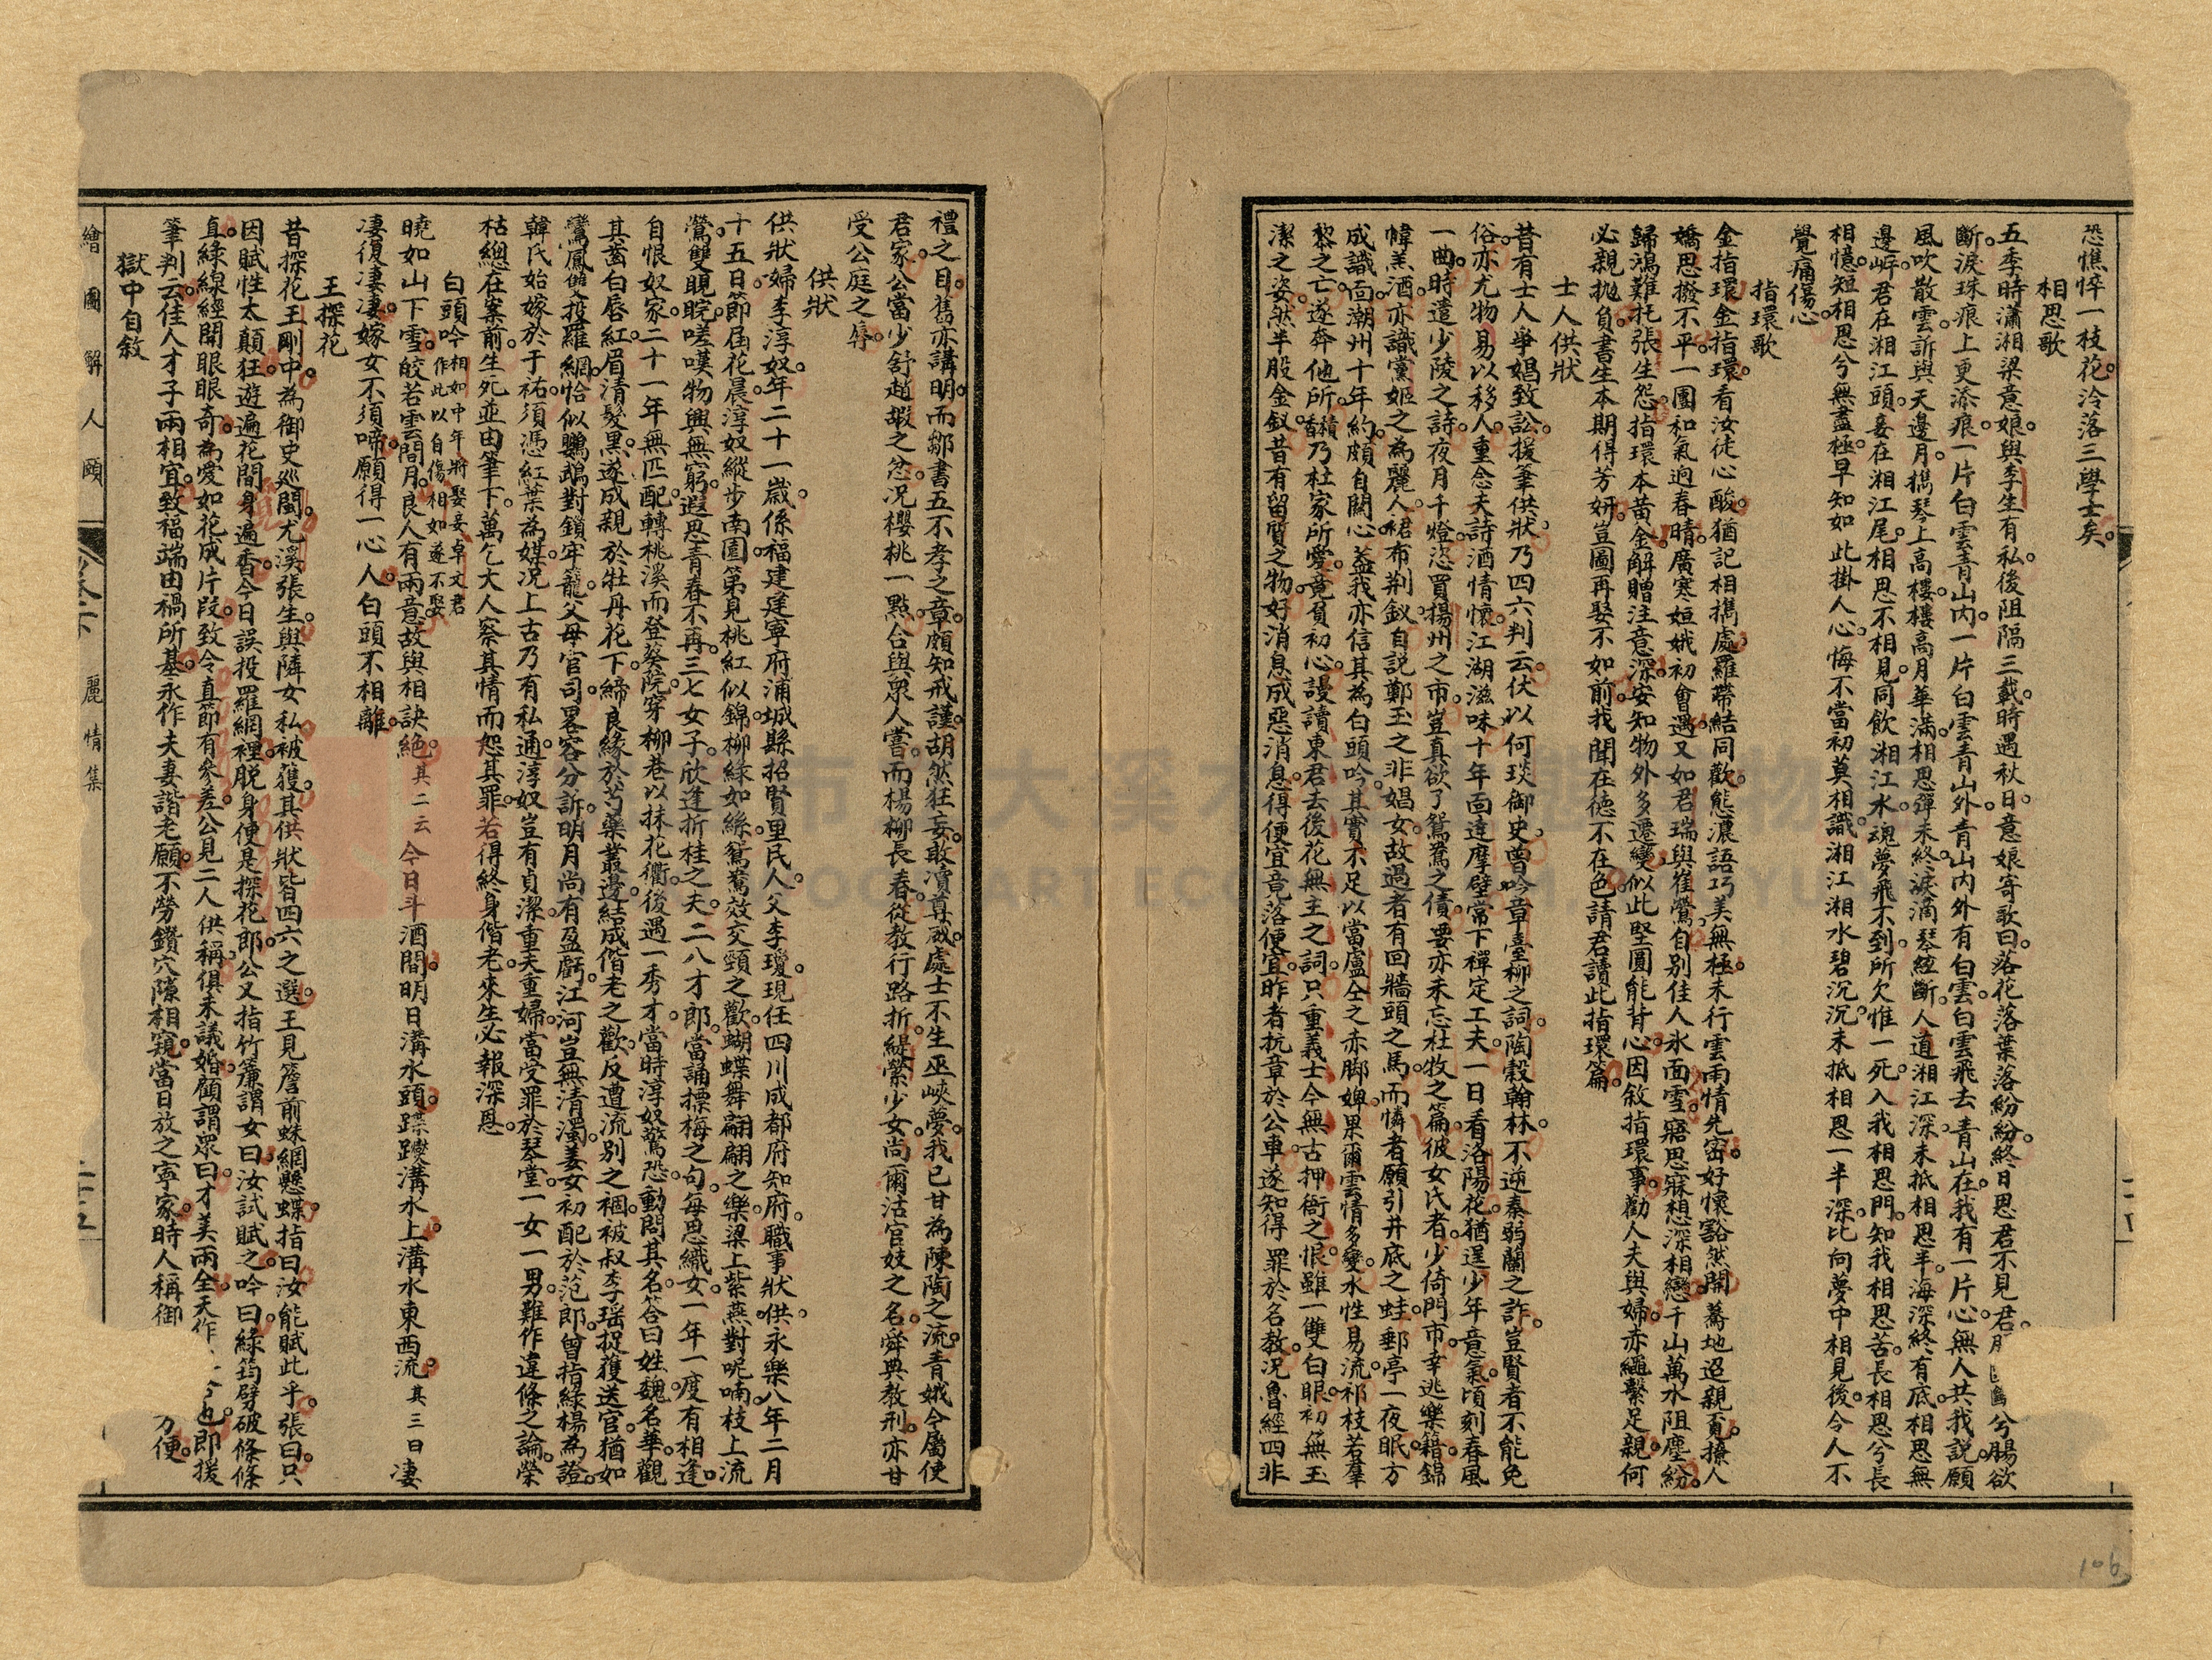 恐憔悴一枝花冷落三學士矣。
相思歌
五李時瀟湘梁意娘。與李生有私。後阻隔三載。時遇秋日。意娘寄歌曰。落花落葉落紛紛。終日思君不見君。兮腸欲
斷。淚珠痕上更添痕。一片白雲青山內。一片白雲青山外。青山內外有白雲。白雲飛去青山在。我有一片心。無人共我說。願
風吹散雲。訴與天邊月。擕琴上高樓。樓高月華滿。相思彈未終。淚滴琴絃斷。人道湘江深。未抵相思半。海深終有底。相思無
邊岸。君在湘江頭。妾在湘江尾。相思不相見。同飲湘江水。魂夢飛不到。所欠惟一死。入我相思門。知我相思苦。長相思兮長
相憶。短相思兮無盡極。早知如此掛人心。悔不當初莫相識。湘江湘水碧沉沉。未抵相思一半深。比向夢中相見後。令人不
覺痛傷心。
指環歌
金指環。金指環。看汝徒心酸。猶記相擕處。羅帶結同歡。態濃語巧美無極。未行雲雨情先密。好懷豁然開。驀地迢親覔。撩人
嬌思撥不平。一團和氣逈春晴。廣寒姮娥初會遇。又如君瑞與崔鶯。自別佳人氷面雪。寤思寐想深相戀。千山萬水阻塵紛。
歸鴻難托張生怨。指環本黃金。解贈注意深。安知物外多遷變。似此堅圓能背心。因敘指環事。勸人夫與婦。亦繩繫足親。何
必親拋負。書生本期得芳妍。豈圖再娶不如前。我聞在德不在色。請君讀此指環篇。
士人供狀
昔有士人爭娼致訟。援筆供狀。乃四六判云。伏以何琰御史。曾吟章臺柳之詞。陶穀翰林。不逆秦弱蘭之詐。豈賢者不能免
俗。亦尤物易以移人。重念夫詩酒情懷。江湖滋味。十年面達摩壁。常下禪定工夫。一日看洛陽花。猶逞少年意氣。頃刻春風
一曲。時遣少陵之詩。夜月千燈。恣買揚州之市。豈真欲了鴛鴦之債。要亦未忘杜牧之篇。彼女氏者。少倚門市。幸逃樂籍。錦
幃羔酒。亦識黨姬之為麗人。裙布荆釵。自説鄭玉之非娼女。故過者有回牆頭之馬。而憐者願引井底之蛙。郵亭一夜眠。方
成識面。潮州十年約。頗自關心。葢我亦信其為白頭吟。其實不足以當盧仝之赤脚婢。果爾雲情多變。水性易流。祁枝若羣
黎之亡。遂奔他所。香積乃杜家所愛。竟負初心。謾讀東君去後花無主之詞。只重義士今無古押衙之恨。雖一雙白眼。初無玉
潔之姿。然半股金釵。昔有留質之物。好消息成惡消息。得便宜竟落便宜。昨者杭章於公車。遂知得罪於名教。況魯經四非
禮之目。舊亦講明。而鄒書五不孝之章。頗知戒謹。胡然狂妄。敢瀆尊威。處士不生巫峽夢。我已甘為陳陶之流。青娥今屬使
君家。公當少舒趙嘏之忿。況櫻桃一點。合與眾人嘗。而楊柳長春。從教行路折。緹縈少女。尚爾沽官妓之名。舜典教刑。亦甘
受公庭之辱。
供狀
供狀婦李淳奴。年二十一歲。係福建建寧府浦城縣招賢里民人。父李瓊。現任四川成都府知府。職事狀供。永樂八年二月
十五日。節屆花晨。淳奴縱步南園。第見桃紅似錦。柳綠如絲。鴛鴦效交頸之歡。蝴蝶舞翩翩之樂。梁上紫燕對呢喃。枝上流
鶯雙睍睆。嗟嘆物興無窮。遐思青春不再。三七女子。欣逢折桂之夫。二八才郎。當誦摽梅之句。每思織女。一年一度有相逢。
自恨奴家。二十一年無匹配。轉桃溪而登葵院。穿柳巷以抹花衢。後遇一秀才。當時淳奴驚恐。動問其名。答曰姓魏名華。觀
其齒白唇紅。眉清髮黑。遂成親於牡丹花下。締良緣於芍藥叢邊。結成偕老之歡。反遭流別之裍。被叔李瑶捉獲送官。猶如
鸞鳳雙投羅網。恰似鸚鵡對鎖牢籠。父母官司。畧容分訴。明月尚有盈虧。江河豈無清濁。姜女初配於范郎。曾指綠楊為證。
韓氏始嫁於于祐。須憑紅葉為媒。況上古乃有私通。淳奴豈有貞潔。重夫重婦。當受罪於琴堂。一女一男。難作違條之論。榮
枯總在案前。生死並由筆下。萬乞大人察其情而恕其罪。若得終身偕老。來生必報深恩。
白頭吟 相如中年將娶妾卓文君作此以自傷相如遂不娶
曉如山下雪。皎若雲間月。良人有兩意。故與相訣絕。其二云今日斗酒間。明日溝水頭。蹀躞溝水上。溝水東西流。其三曰凄
凄復凄凄。嫁女不須啼。願得一心人。白頭不相離。
王探花
昔探花王剛中。為御史廵閩。尤溪張生。與隣女私被獲。其供狀皆四六之選。王見簷前蛛網懸蝶。指曰汝能賦此乎。張曰。只
因賦性太顛狂。遊遍花間身遍香。今日誤投羅網裡。脱身便是探花郎。公又指竹簾謂女曰汝試賦之。吟曰。綠筠劈破條條
直。綠線經開眼眼奇。為愛如花成片段。致令真節有參差。公見二人供稱。俱未議婚。顧謂眾曰。才美兩全。天作也。即援
筆判云。佳人才子兩相宜。致福端由禍所基。永作夫妻諧老願。不勞鑽穴隙相窺。當日放之寧家。時人稱御方便。
獄中自敘
繪圖解人頤
卷下
麗情集
二十五
106